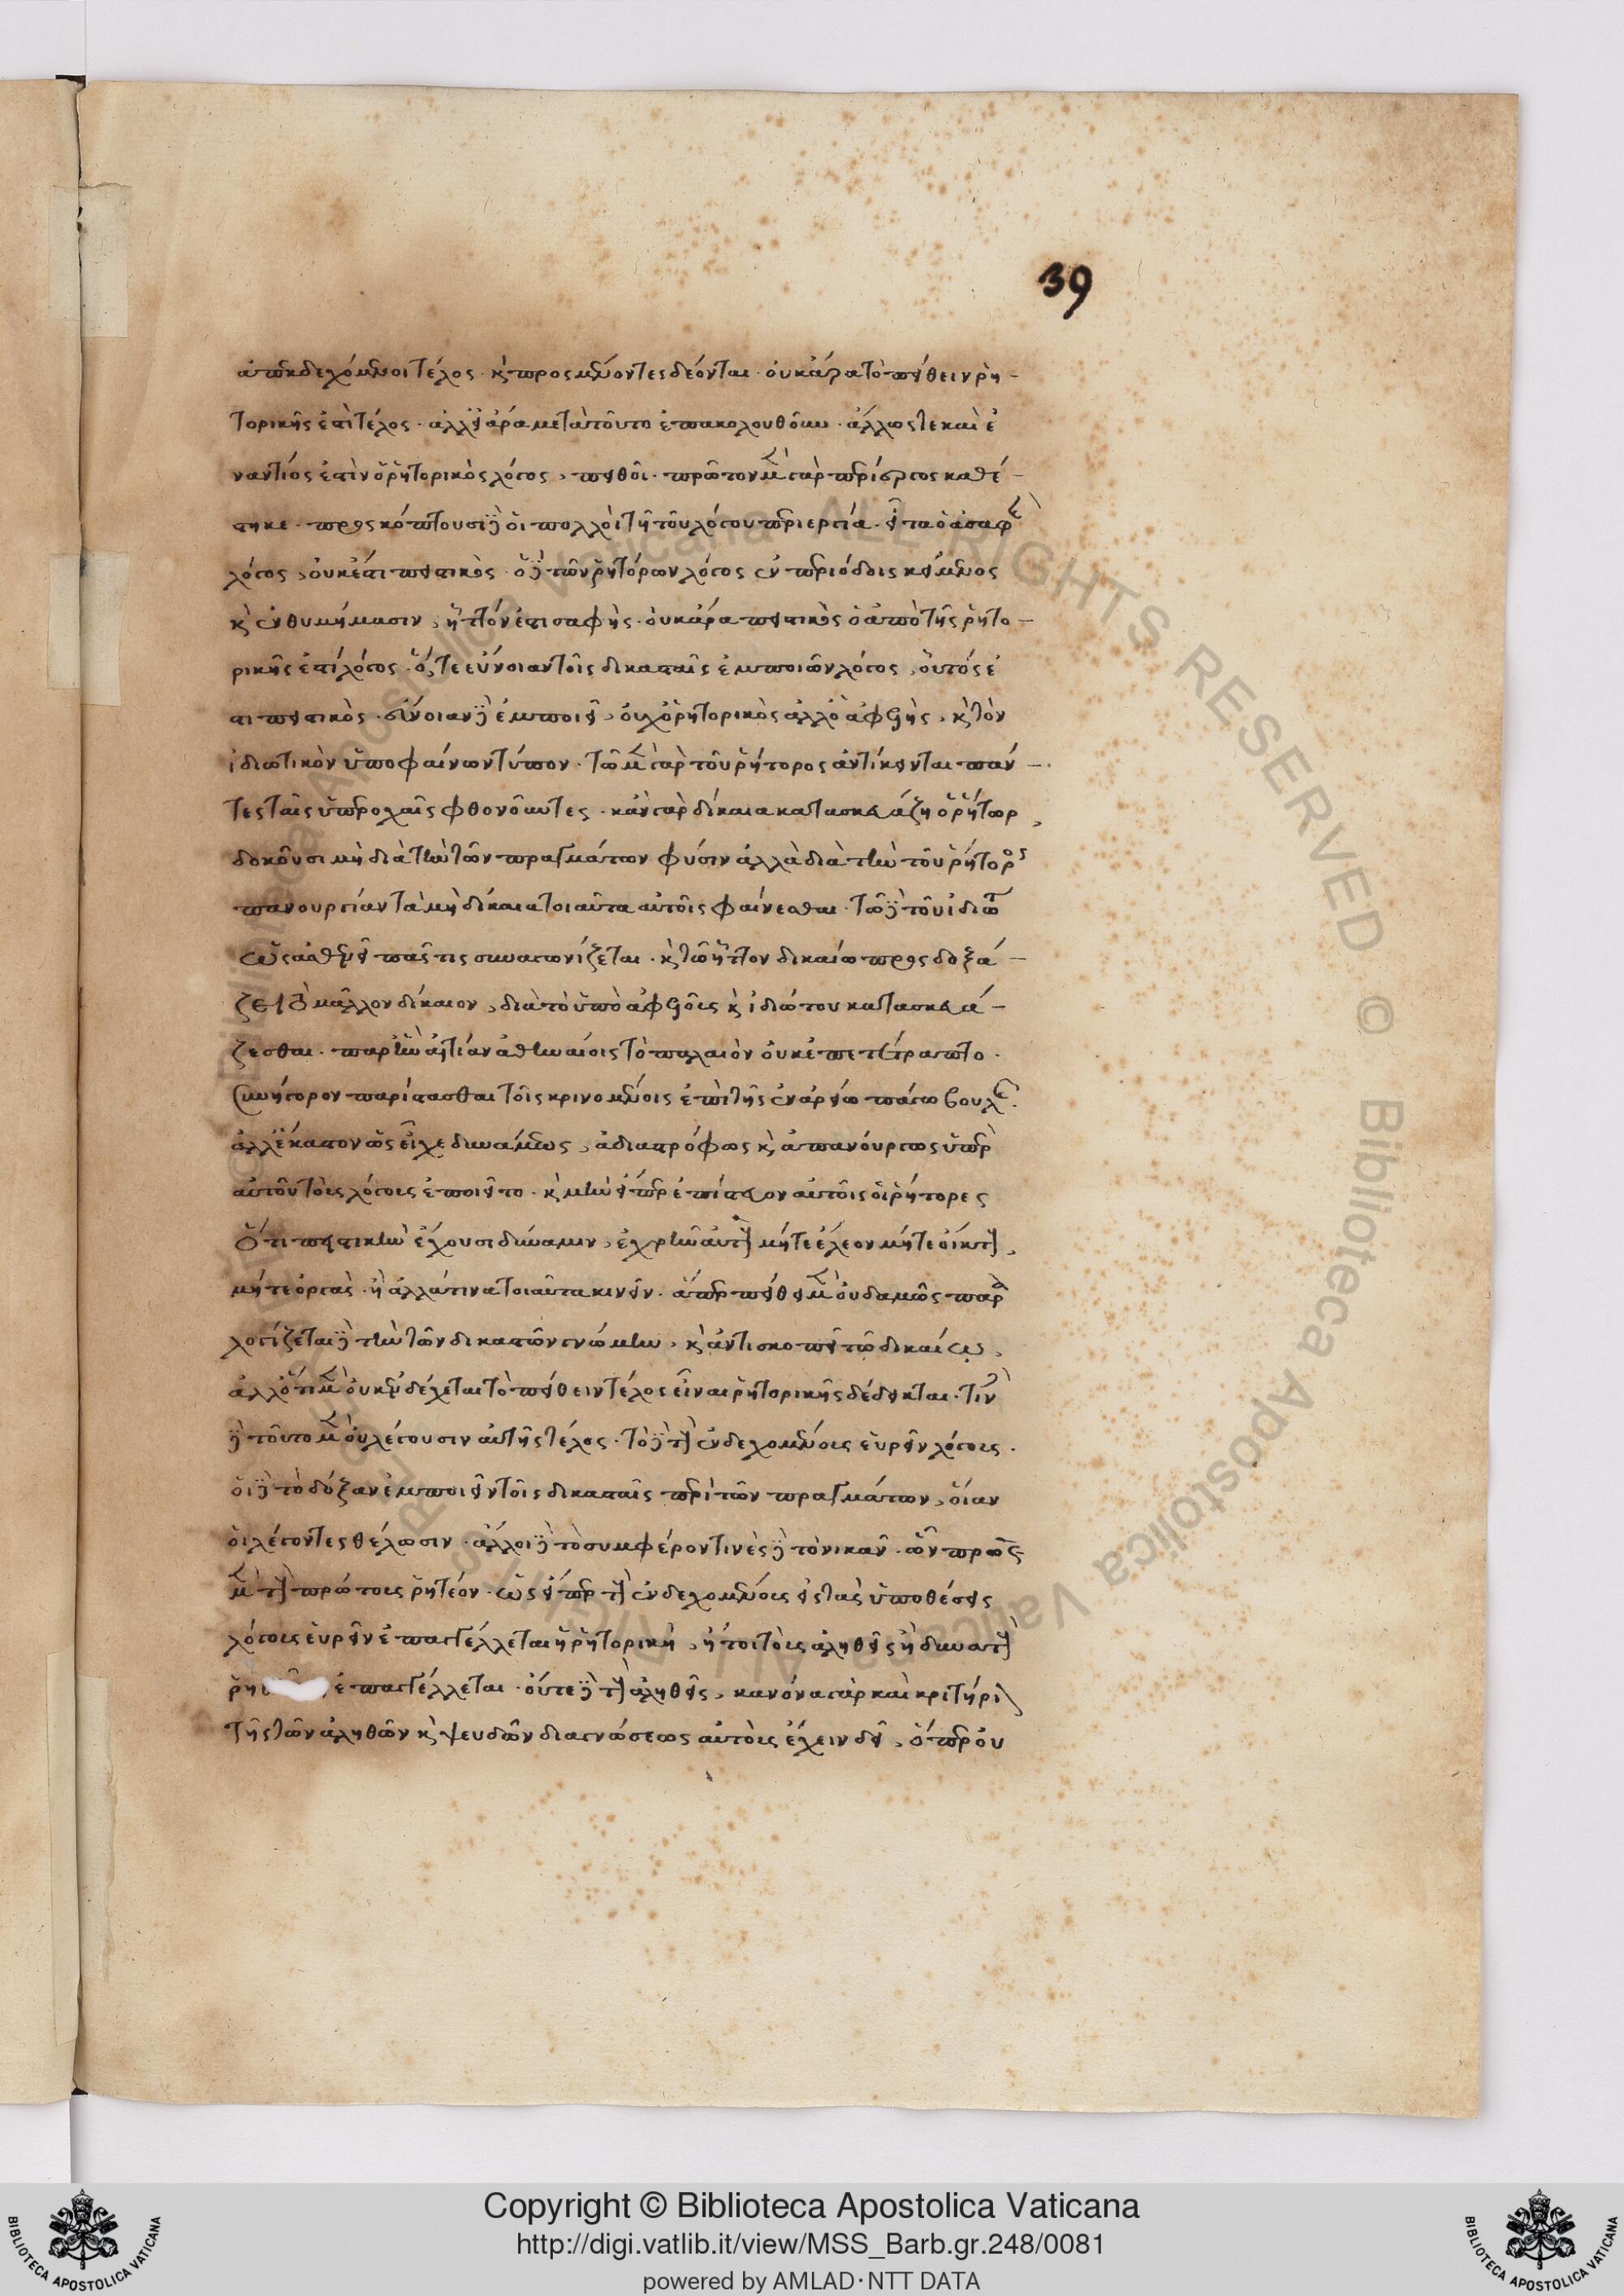 39
ἀπεκδεχόμενοι τέλος. καὶ προσμένοντες δέονται. οὐκ ἄρα τὸ πείθειν ῥη-
τορικῆς ἐστὶ τέλος. ἀλλ' εἰ ἄρα μετὰ τοῦτο ἐπακολουθοῦν. ἄλλως τε καὶ ἐ
ναντίος ἐστὶν ὁ ῥητορικὸς λόγος, πειθοῖ. πρῶτον μὲν γὰρ περίεργος καθέ-
στηκε. προσκόπτουσι δὲ οἱ πολλοὶ τῇ τοῦ λόγου περιεργία. εἶτα ὁ ἀσαφὴς
λόγος, οὐκ ἔστι πειστικὸς. ὁ δὲ τῶν ῥητόρων λόγος ἐν περιόδοις κείμενος
καὶ ἐνθυμήμασιν, ἧττόν ἐστι σαφὴς. οὐκ ἄρα πειστικὸς ὁ ἀπὸ τῆς ῥητο-
ρικῆς ἐστί λόγος. ὅ, τε εὔνοιαν τοῖς δικασταῖς ἐμποιῶν λόγος, οὗτός ἐ
στι πειστικὸς. εὔνοιαν δὲ ἐμποιεῖ, οὐχ ὁ ῥητορικὸς ἀλλ' ὁ ἀφελὴς, καὶ τὸν
ἰδιωτικὸν ὑποφαίνων τύπον. τῷ μὲν γὰρ τοῦ ῥήτορος ἀντίκεινται πάν-
τες ταῖς ὑπεροχαῖς φθονοῦντες. κἂν γὰρ δίκαια κατασκευάζῃ ὁ ῥήτωρ,
δοκοῦσι μὴ διὰ τὴν τῶν πραγμάτων φύσιν ἀλλὰ διὰ τὴν τοῦ ῥήτορος
πανουργίαν τὰ μὴ δίκαια τοιαῦτα αὐτοῖς φαίνεσθαι. τῷ δὲ τοῦ ἰδιώτου
ὡς ἀσθενεῖ πᾶς τις συναγωνίζεται. καὶ τῷ ἧττον δικαίω προσδοξά-
ζεται μᾶλλον δίκαιον, διὰ τὸ ὑπὸ ἀφελοῦς καὶ ἰδιώτου κατασκευά-
ζεσθαι. παρ' ἣν αἰτίαν ἀθηναίοις τὸ παλαιὸν οὐκ ἐπετέτραπτο.
συνήγορον παρίστασθαι τοῖς κρινομένοις ἐπὶ τῆς ἐν ἀρείω πάγω βουλῆς.
ἀλλ' ἕκαστον ὡς εἶχε δυνάμεως, ἀδιαστρόφως καὶ ἀπανούργως ὑπὲρ
αὐτοῦ τοὺς λόγους ἐποιεῖτο. καὶ μὴν εἴπερ ἐπίστευον αὐτοῖς οἱ ῥήτορες
ὅτι πειστικὴν ἔχουσι δύναμιν, ἐχρῆν αὐτοὺς μήτε ἔλεον μήτε οἴκτους,
μήτε ὀργὰς. ἢ ἀλλάτινα τοιαῦτα κινεῖν. ἅπερ πείθει μὲν οὐδαμῶς παρα
λογίζεται δὲ τὴν τῶν δικαστῶν γνώμην, καὶ ἀντισκοπεῖ τῷ δικαίῳ,
ἀλλ' ὅτι μὲν οὐκ ἐνδέχεται τὸ πείθειν τέλος εἶναι ῥητορικῆς δέδεικται. τινὲς
δὲ τοῦτο μὲν οὐ λέγουσιν αὐτῆς τέλος. τὸ δὲ τοὺς ἐνδεχομένους εὑρεῖν λόγους.
οἱ δὲ τὸ δόξαν ἐμποιεῖν τοῖς δικασταῖς περὶ τῶν πραγμάτων, οἵαν
οἱ λέγοντες θέλωσιν. ἄλλοι δὲ τὸ συμφέρον τινὲς δὲ τὸ νικᾶν. ὧν πρὸς
μὲν τοὺς πρώτους ῥητέον. ὡς εἴπερ τοὺς ἐνδεχομένους εἰς τὰς ὑποθέσεις
λόγους εὑρεῖν ἐπαγγέλλεται ἡ ῥητορικὴ, ἤτοι τοὺς ἀληθεῖς ἢ δυνατοὺς
εὑρ ἐπαγγέλλεται. οὔτε δὲ τοὺς ἀληθεῖς, κανόνα γὰρ καὶ κριτήριον
τῆς τῶν ἀληθῶν καὶ ψευδῶν διαγνώσεως αὐτοὺς ἔχειν δεῖ, ὅπερ οὐ
Copyright © Biblioteca Apostolica Vaticana
http://digi.vatlib.it/view/MSS_Barb.gr.248/0081
powered by AMLAD·NTT DATA